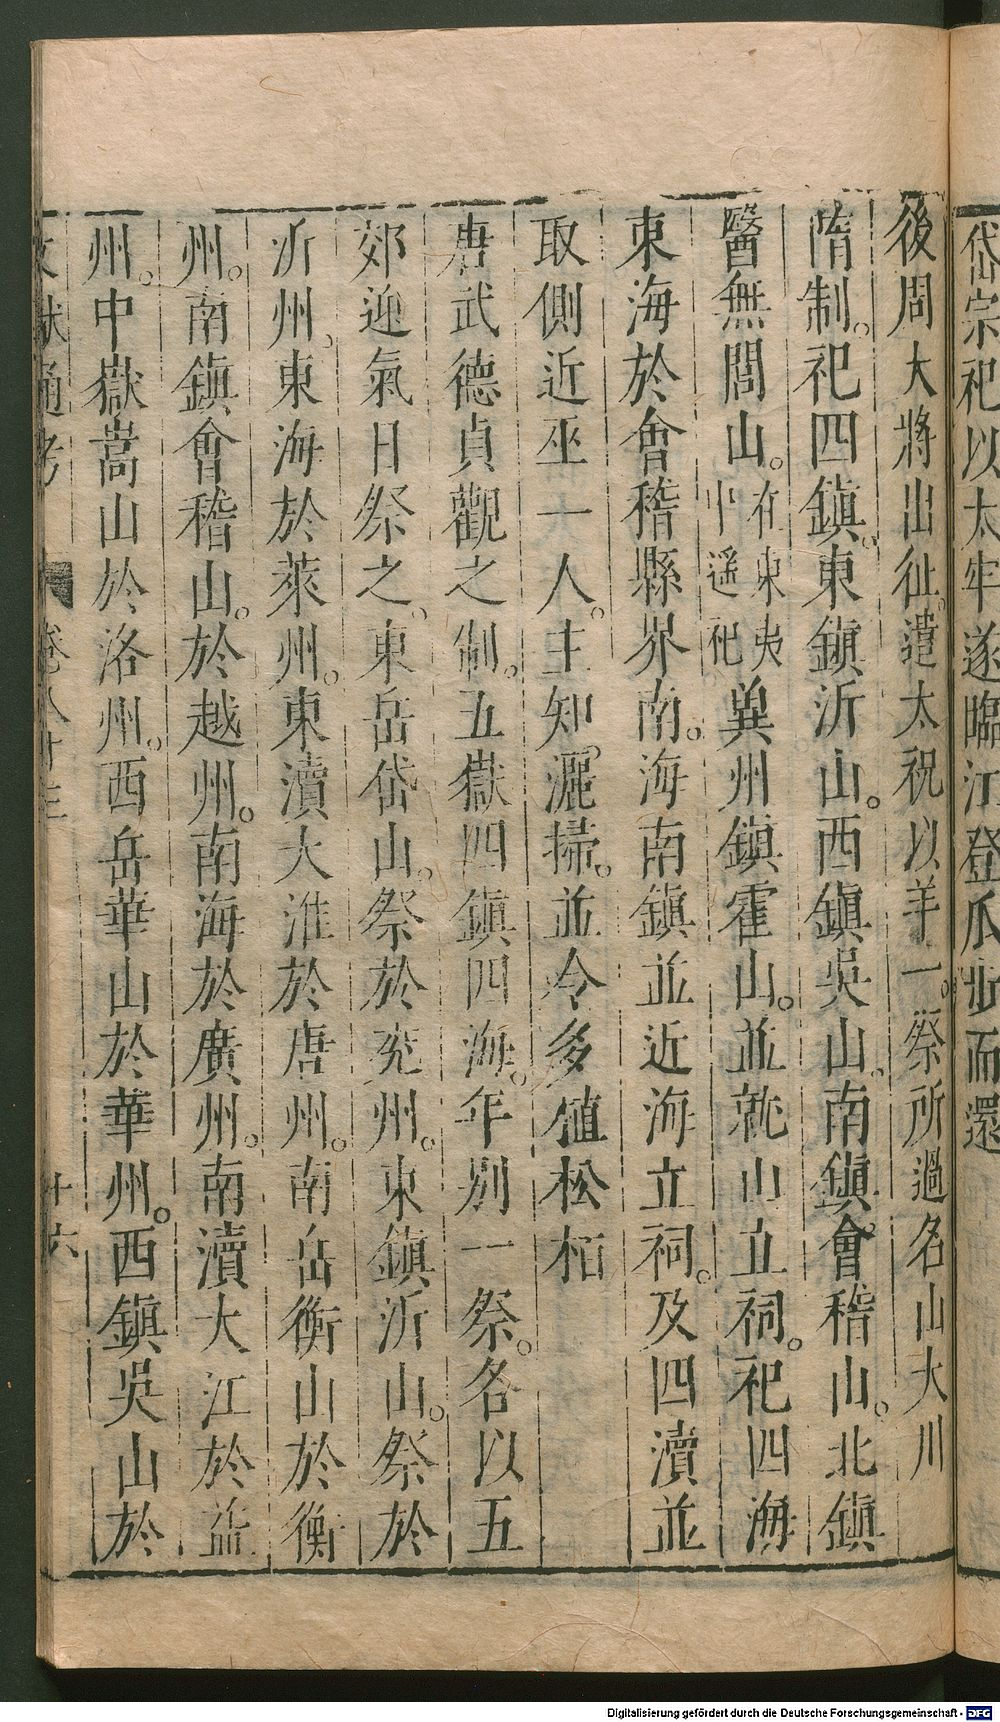 岱宗祀以太牢遂臨江登瓜步而還
後周大將出征。遣太祝以羊一。祭所過名山大川
隋制。祀四鎮。東鎮沂山。西鎮吳山。南鎮會稽山。北鎮
醫無閭山。在東夷中遥祀兾州鎮霍山。並就山立祠。祀四海
東海於會稽縣界南。海南鎮並近海立祠。及四瀆並
取側近巫一人。主知。灑掃。並令多植松柏
唐武德貞觀之制。五嶽四鎮四海。年别一祭。各以五
郊迎氣日祭之。東岳岱山。祭於兖州。東鎮沂山。祭於
沂州。東海於萊州。東瀆大淮於唐州。南岳衡山於衡
州。南鎮會稽山。於越州。南海於廣州。南瀆大江於益
州。中嶽嵩山於洛州。西岳華山於華州。西鎮吳山於
文獻通考 卷八十三 十六
Digitalisierung gefördert durch die Deutsche Forschungsgemeinschaft - DFG